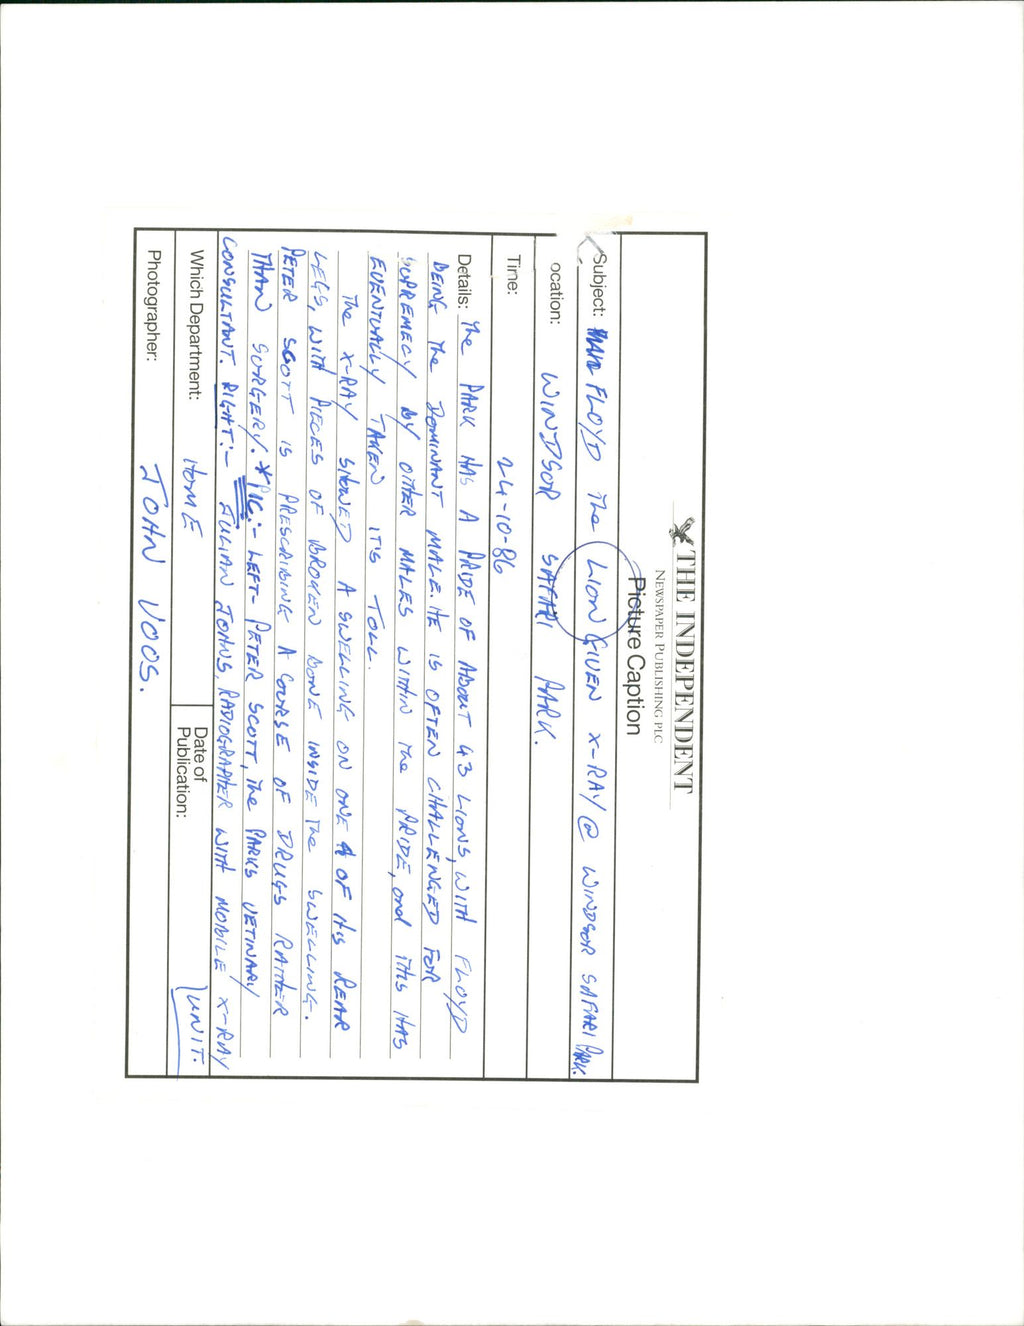 THE INDEPENDENT
NEWSPAPER PUBLISHING PLC
Picture Caption
Subject: FLOYD The LION GIVEN X-RAY @ WINDSOR SAFARI PARK.
ocation: WINDSOR SAFARI PARK.
Time: 24-10-86
Details: The PARK HAS A PRIDE OF ABOUT 43 LIONS, WITH FLOYD
BEING The DOMINANT MALE. HE IS OFTEN CHALLENGED FOR
SUPREMECY BY OTHER MALES WITHIN The PRIDE, and THIS HAS
EVENTUALLY TAKEN IT'S TOLL.
The X-RAY SHOWED A SWELLING ON ONE OF HIS REAR
LEGS, WITH PIECES OF BROKEN BONE INSIDE The SWELLING.
PETER SCOTT IS PRESCRIBING A COURSE OF DRUGS RATHER
THAN SURGERY. *PIC:- LEFT- PETER SCOTT, The PARKS VETINARY
CONSULTANT. RIGHT:- JULIAN JOHNS, RADIOGRAPHER WITH MOBILE X-RAY
UNIT.
Which Department: HOME
Date of
Publication:
Photographer: JOHN VOOS.